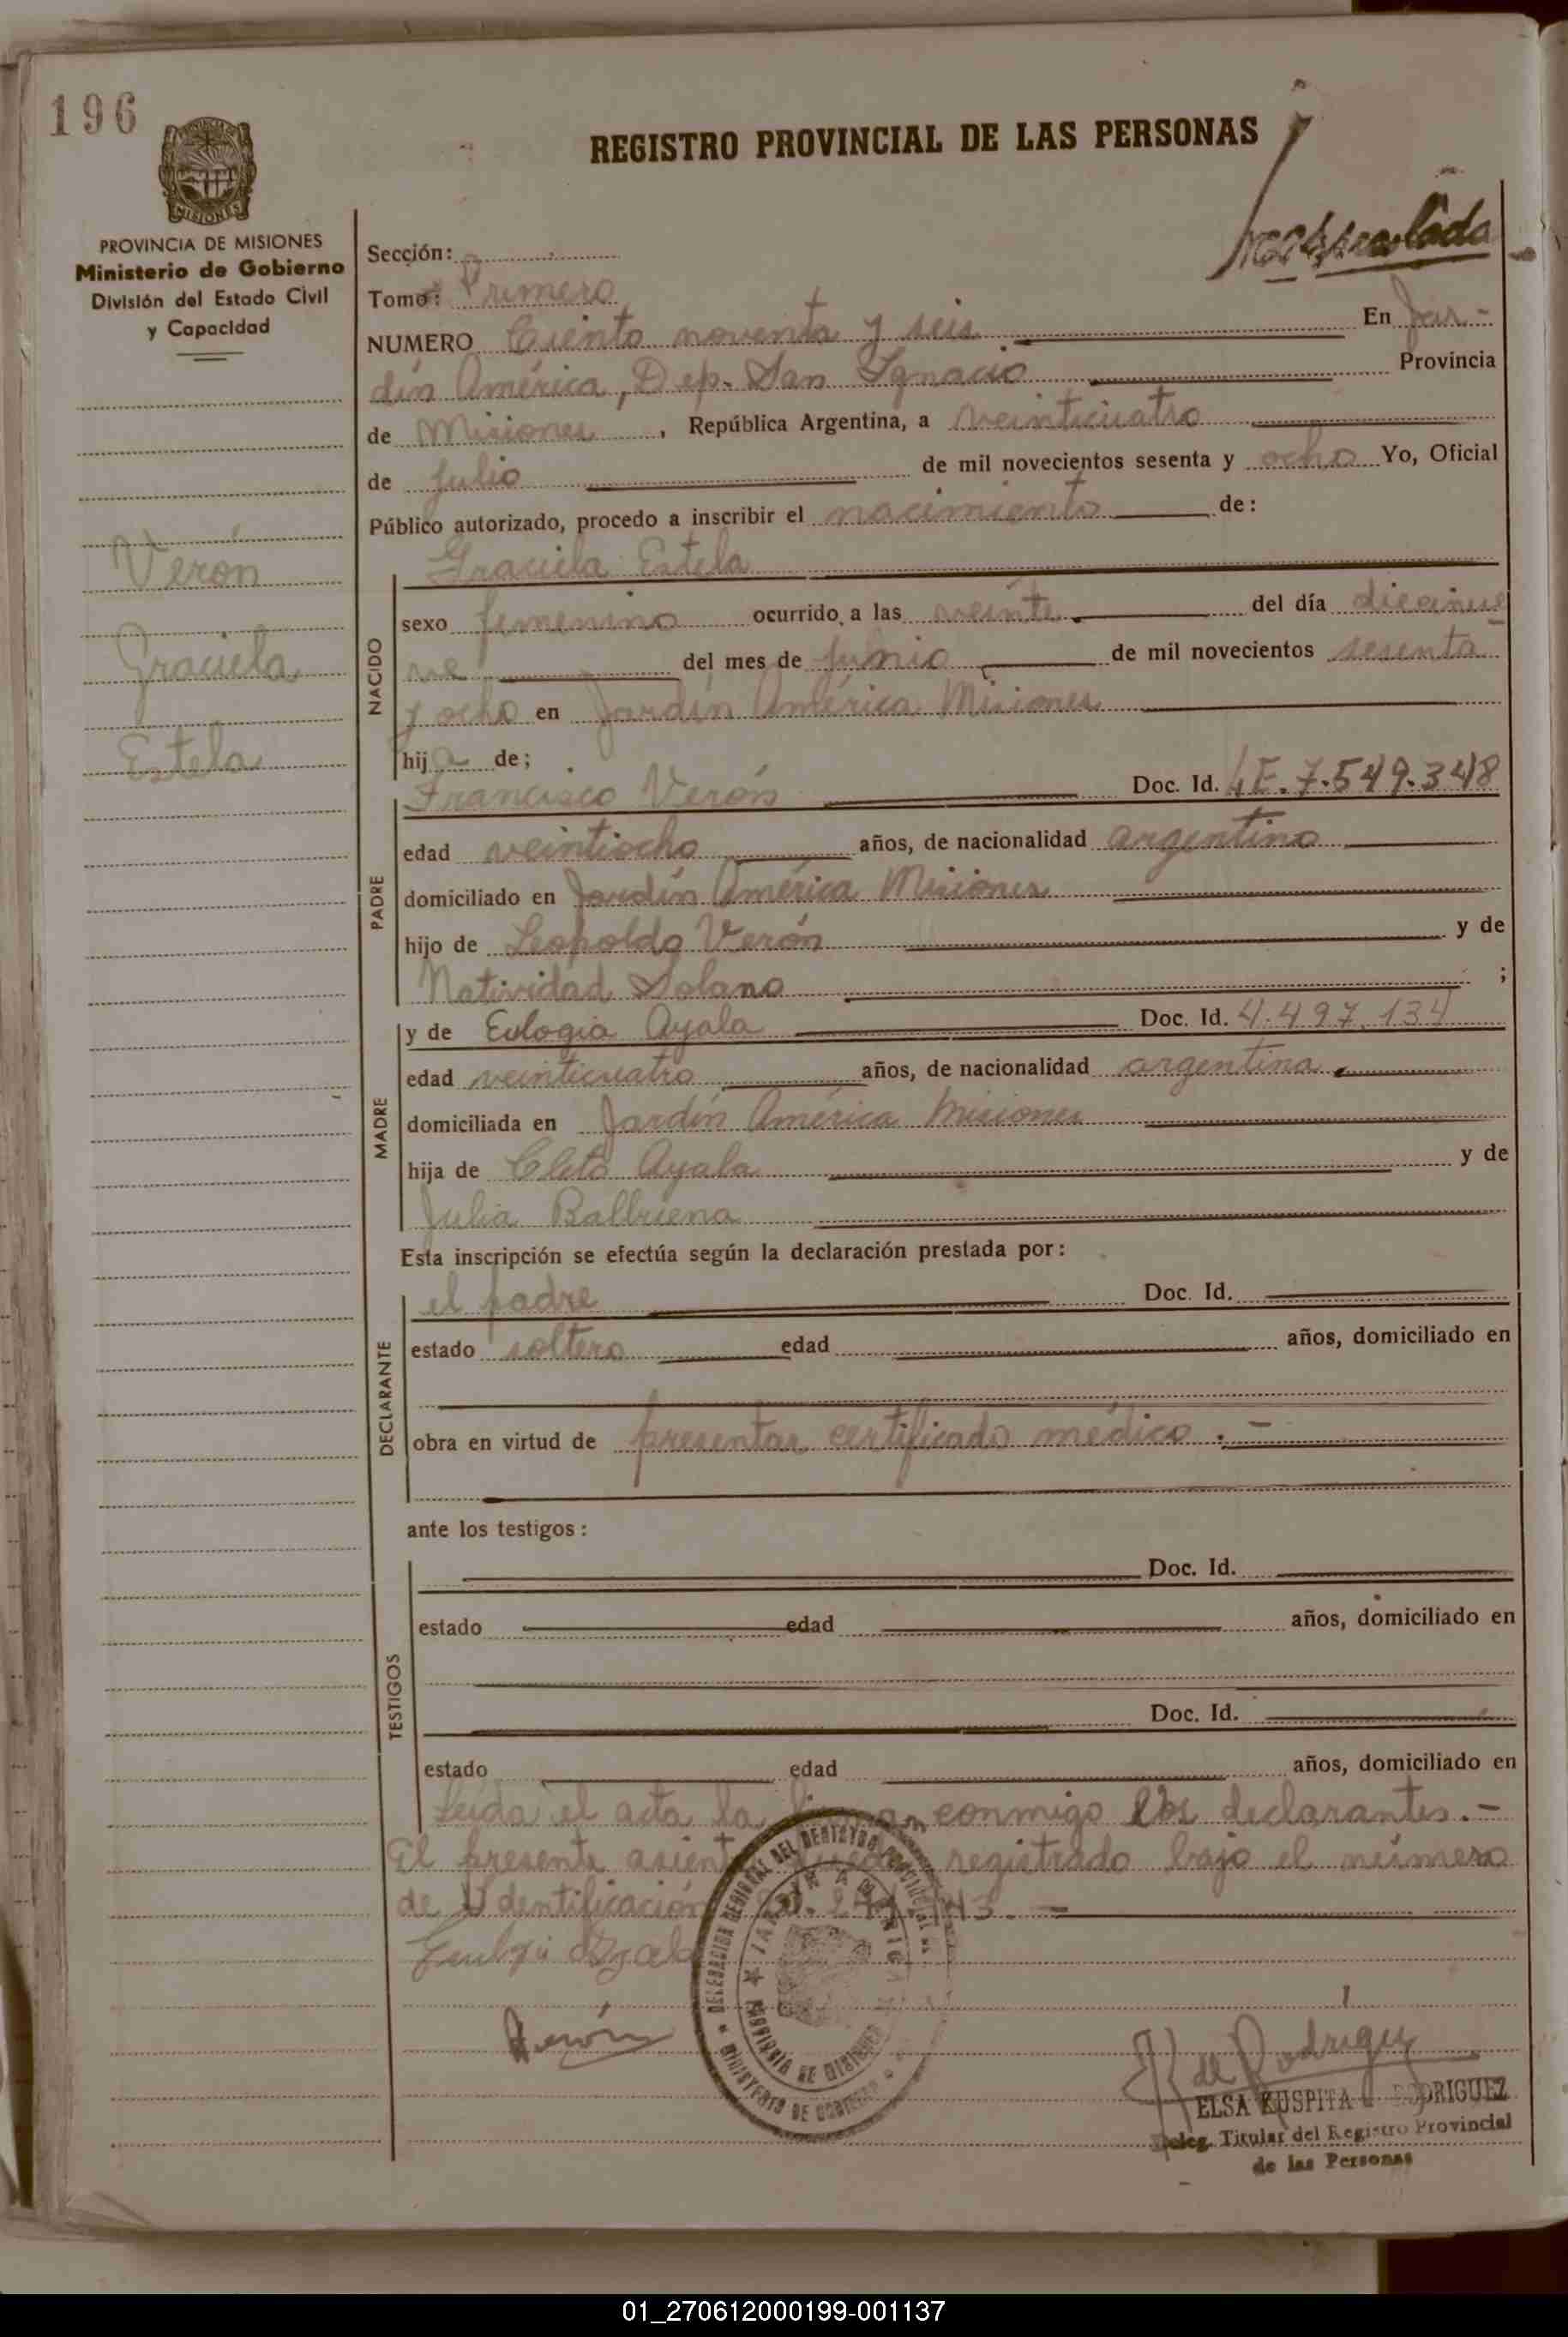 196
REGISTRO PROVINCIAL DE LAS PERSONAS
PROVINCIA DE MISIONES
Ministerio de Gobierno
División del Estado Civil
y Capacidad
Sección:
Tomo: Primero
NUMERO Ciento noventa y seis En Jar-
dín América, Dep. San Ignacio Provincia
de Misiones, República Argentina, a veinticuatro
de Julio de mil novecientos sesenta y ocho Yo, Oficial
Público autorizado, procedo a inscribir el nacimiento de:
Verón
Graciela
Estela
Graciela Estela
NACIDO
sexo femenino ocurrido a las veinte del día diecinue
ve del mes de Junio de mil novecientos sesenta
y ocho en Jardín América Misiones
hija de;
PADRE
Francisco Verón Doc. Id. LE. 7.549.348
edad veintiocho años, de nacionalidad argentino
domiciliado en Jardín América Misiones
hijo de Leopoldo Verón y de
Natividad Solano ;
MADRE
y de Eulogia Ayala Doc. Id. 4.497.134
edad veinticuatro años, de nacionalidad argentina
domiciliada en Jardín América Misiones
hija de Cleto Ayala y de
Julia Balbuena
Esta inscripción se efectúa según la declaración prestada por:
DECLARANTE
el padre Doc. Id.
estado soltero edad años, domiciliado en
obra en virtud de presentar certificado médico.-
ante los testigos:
TESTIGOS
Doc. Id.
estado edad años, domiciliado en
Doc. Id.
estado edad años, domiciliado en
Leída el acta la conmigo los declarantes.-
El presente asiento registrado bajo el número
de Identificación
Verón
de Rodriguez
ELSA KUSPITA RODRIGUEZ
Deleg. Titular del Registro Provincial
de las Personas
DELEGACION REGIONAL DEL REGISTRO PROVINCIAL
MINISTERIO DE GOBIERNO
PROVINCIA DE MISIONES
01_270612000199-001137